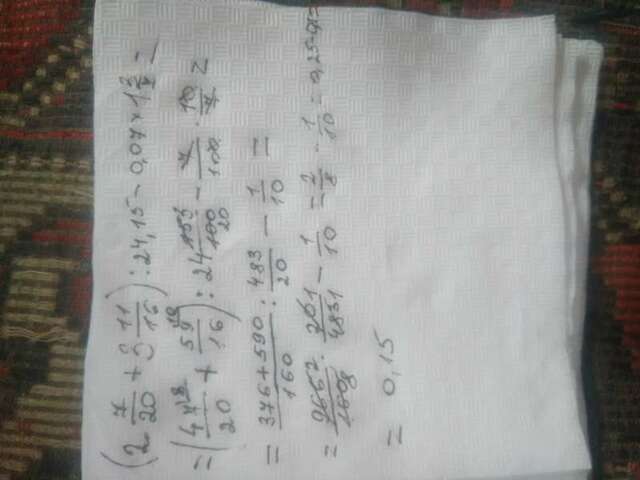 (2 7/20 + 3 11/16) : 24,15 - 0,07 × 1 3/7 =
= (47⁸/20 + 59¹⁰/16) : 24 15³/100 20 - 7/100 · 10/7 =
= 376+590/160 : 483/20 - 1/10 =
= 966 2/160 8 · 20 1/483 1 - 1/10 = 2/8 - 1/10 = 0,25-0,1=
= 0,15